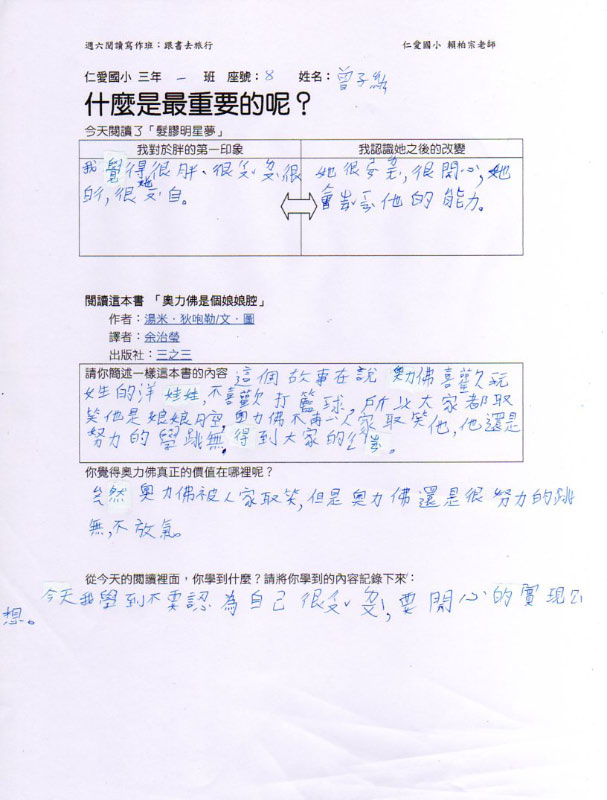 週六閱讀寫作班：跟書去旅行 仁愛國小 賴柏宗老師
仁愛國小 三年 一 班 座號：8 姓名：曾子
什麼是最重要的呢？
今天閱讀了「髮膠明星夢」
我對於胖的第一印象 我認識她之後的改變
我覺得很胖、很ㄔㄡˇ很 她很ㄕㄢˋ,很開心,她
的,很自。 會 他的能力。
閱讀這本書 「奧力佛是個娘娘腔」
作者：湯米．狄咆勒/文．圖
譯者：余治瑩
出版社：三之三
請你簡述一樣這本書的內容 這個故事在說 奧力佛喜歡玩
女生的洋娃娃,不喜歡打籃球,所以大家都取
笑他是娘娘腔,奧力佛不 人家取笑他,他還是
努力的學跳無,得到大家的
你覺得奧力佛真正的價值在哪裡呢？
然奧力佛被人家取笑,但是奧力佛還是很努力的跳
無,不放氣。
從今天的閱讀裡面，你學到什麼？請將你學到的內容記錄下來：
今天我學到不要認為自己很,要開心的實現ㄌㄧˇ
想。